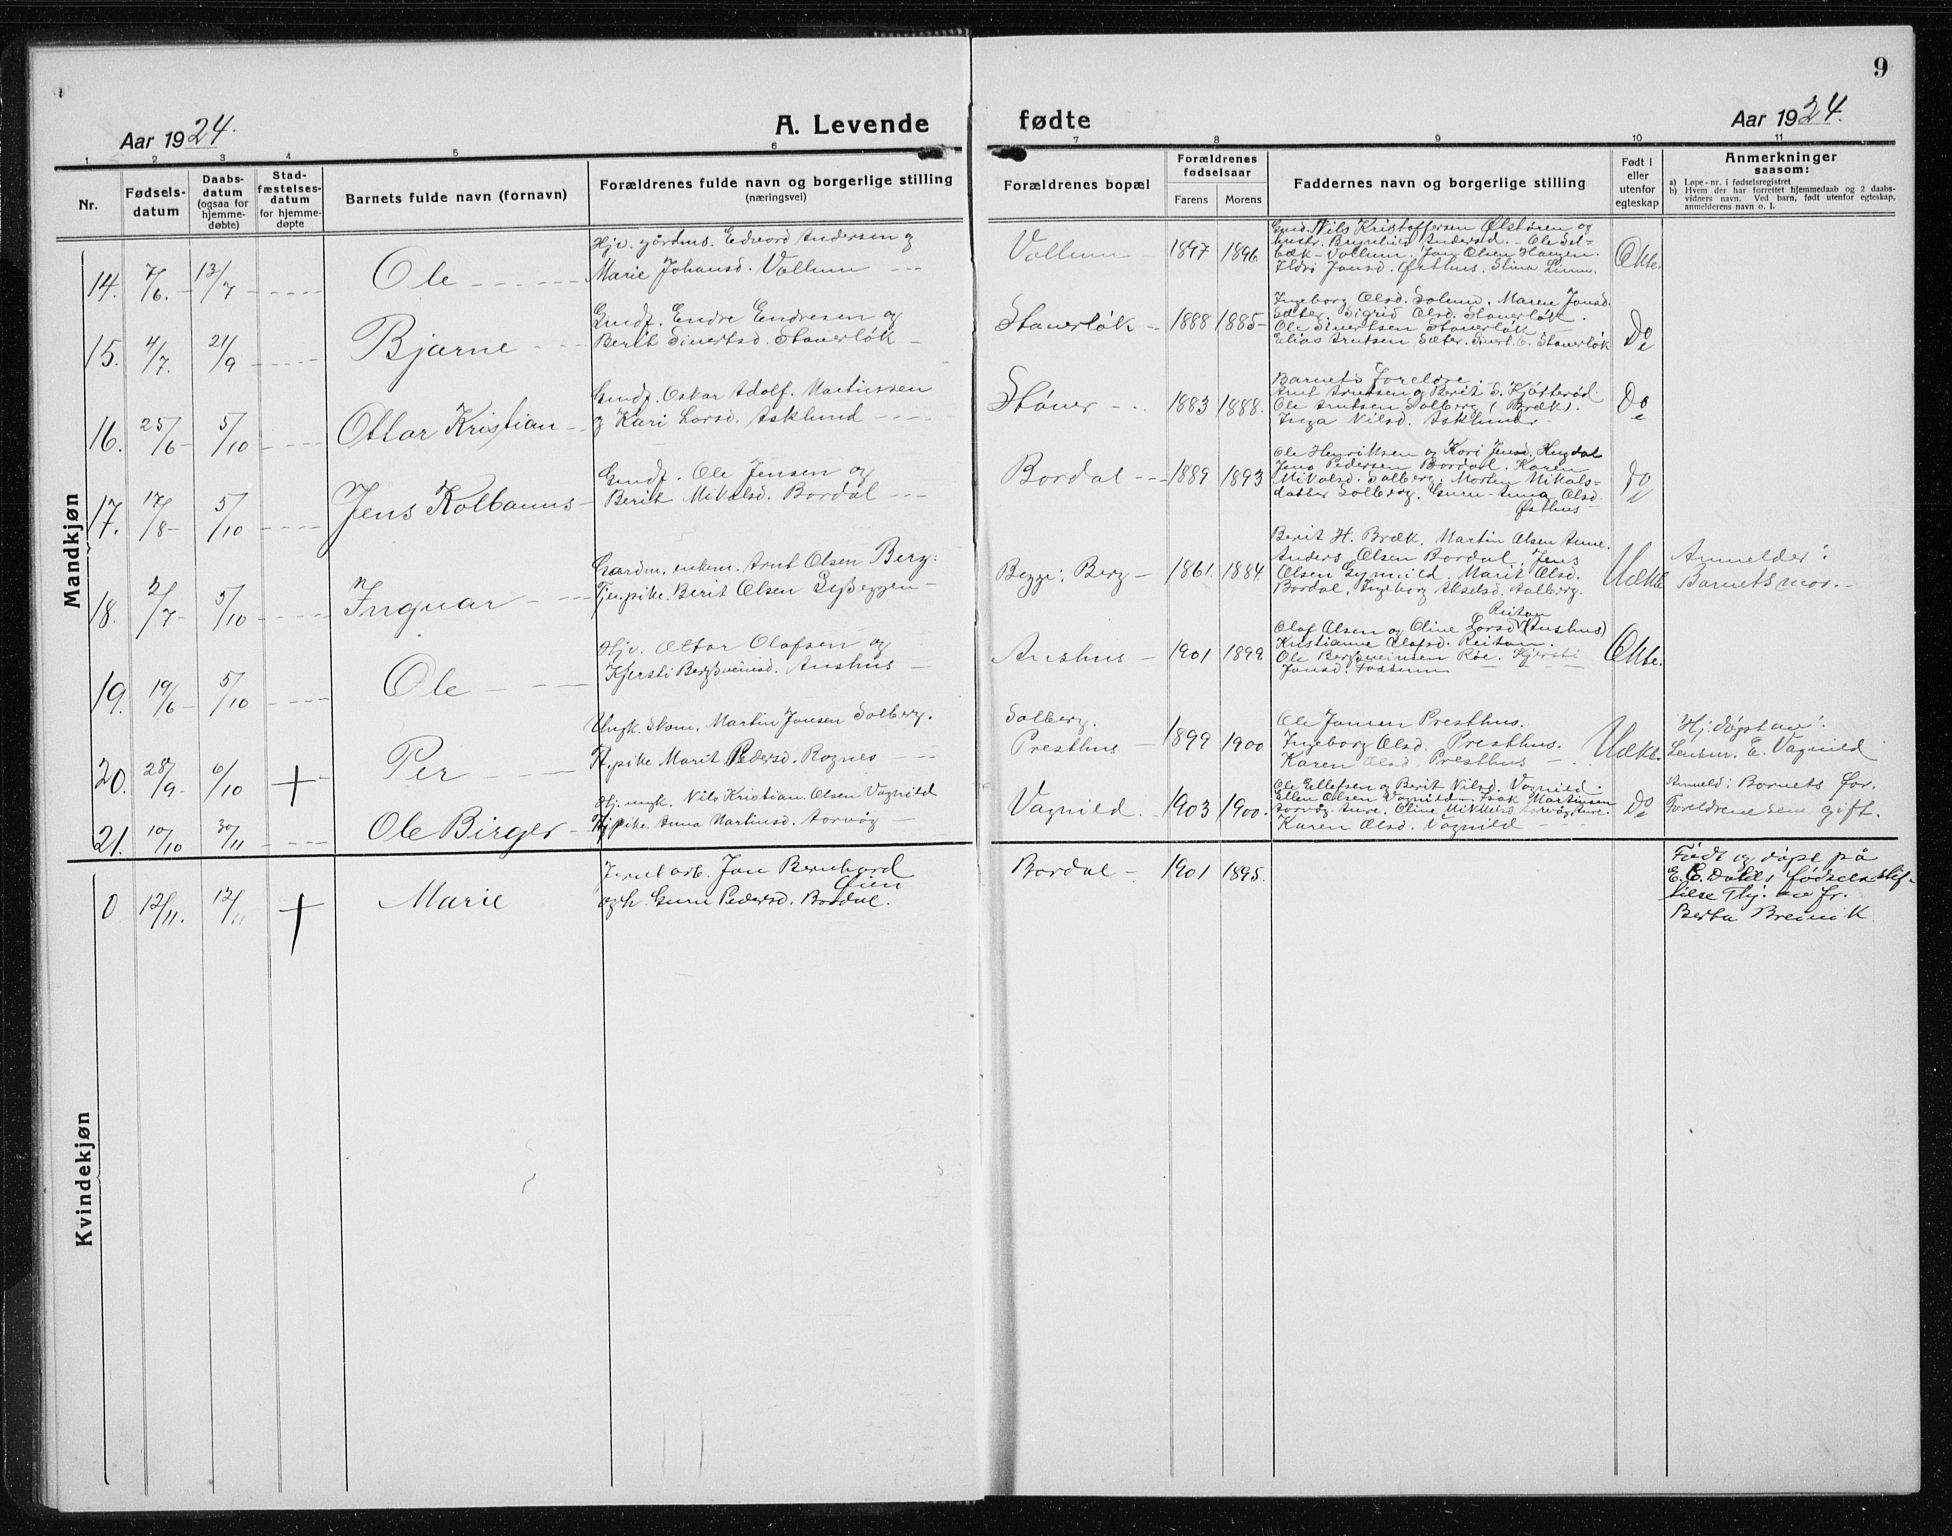 9
Aar 1924.
A. Levende fødte
Aar 1924.
1 2 3 4 5 6 7 8 9 10 11
Nr.
Fødsels-
datum
Daabs-
datum
(ogsaa for
hjemme-
døbte)
Stad-
fæstelses-
datum
for hjemme-
døpte
Barnets fulde navn (fornavn)
Forældrenes fulde navn og borgerlige stilling
(næringsvei)
Forældrenes bopæl
Forældrenes
fødselsaar
Farens
Morens
Faddernes navn og borgerlige stilling
Født i
eller
utenfor
egteskap
Anmerkninger
saasom:
a) Løpe-nr. i fødselsregistret
b) Hvem der har forrettet hjemmedaab og 2 daabs-
vidners navn. Ved barn, født utenfor egteskap,
anmelderens navn o. l.
Mandkjøn
14. 7/6 13/7 Ole
Hjv. gårdms. Edvard Andersen og
Marie Johansd. Vollum
Vollum 1897 1896
Gmd. Nils Kristoffersen Ølstøren og
hustr. Brynhild Andersd. Ole Sel-
bæk-Vollum. Jon Olsen Haugen.
Ildri Jonsd. Østhus. Stina Linum.
Ekte.
15. 4/7. 21/9 Bjarne
Gmdf. Endre Endresen og
Berit Sivertsd. Stanerløk
Stanerløk 1888 1885
Ingeborg Olsd. Solem. Maren Jonsd.
Sæter. Sigrid Olsd. Stanerløk.
Ole Sivertsen Stanerløk.
Elias Arntsen Sæter. Sivert E. Stanerløk
Do
16. 25/6 5/10 Ottar Kristian
Gmdf. Oskar Adolf Martinssen
og Kari Larsd. Asklund
Støver 1883 1888.
Barnets foreldre.
Arnt Arntsen og Berit S. Kjøtterød
Ole Arntsen Solberg (Bræk).
Inga Nilsd. Asklund.
Do
17. 17/8 5/10 Jens Kolbanus
Gmdf. Ole Jensen og
Berit Mikalsd. Bordal
Bordal 1889 1893
Ole Henriksen og Kari Jensd. Hugdal
Jens Pedersen Bordal. Karen
Mikalsd. Solberg. Morten Mikals-
datter Solberg. Guru-Anna Olsd.
Østhus
Do
18. 2/7 5/10 Ingvar
Gaardm. enkem. Arnt Olsen Berg:
Tj. pike. Berit Olsen
Begge: Berg 1861. 1884.
Berit H. Bræk. Martin Olsen Aune.
Anders Olsen Bordal. Jens
Olsen Gynnild. Marit Olsd.
Bordal, Ingeborg Akselsd. Solberg.
Uekte
Anmelder:
Barnets mor.
19. 19/6 5/10 Ole
Hjv. Ottar Olafsen og
Kjersti Bergsveinsd. Anshus
Anshus 1901 1899
Reitan
Olaf Olsen og Oline Larsd. (Anshus)
Kristianne Olafsd. Reitan.
Ole Bergsveinsen Røe. Kjersti
Jonsd. Fossum
Ekte.
20. 28/9 6/10 + Per
Ungk. Skom. Martin Jonsen Solberg.
Tj. pike Marit Pedersd. Rognes
Solberg.
Presthus 1899 1900
Ole Jonsen Presthus.
Ingeborg Olsd. Presthus.
Karen Olsd. Presthus
Uekte.
Hj. døpt av:
Lensm. E. Vagnild
21. 10/10 30/11 Ole Birger
Hj. ungk. Nils Kristian Olsen Vagnild
Tj. pike. Anna Martinsd. Aarvåg
Vagnild. 1903 1900.
Ole Ellefsen og Berit Nilsd. Vagnild.
Ellen Olsen Vagnild. Isak Martinsen
Aarvåg-Aure. Oline Mikkelsd. Aarvåg, Aure.
Karen Olsd. Vagnild
Do
Anmeld: Barnets far.
Foreldrene sen. gift.
Kvindekjøn
0 12/11. 12/11 + Marie
Jernb. arb. Jon Bernhard
Øien
og h. Guru Pedersd. Bordal.
Bordal 1901 1895.
Født og døpt på
E. C. Dahls fødselsstif-
telse Thj. av fr.
Berta Breivik